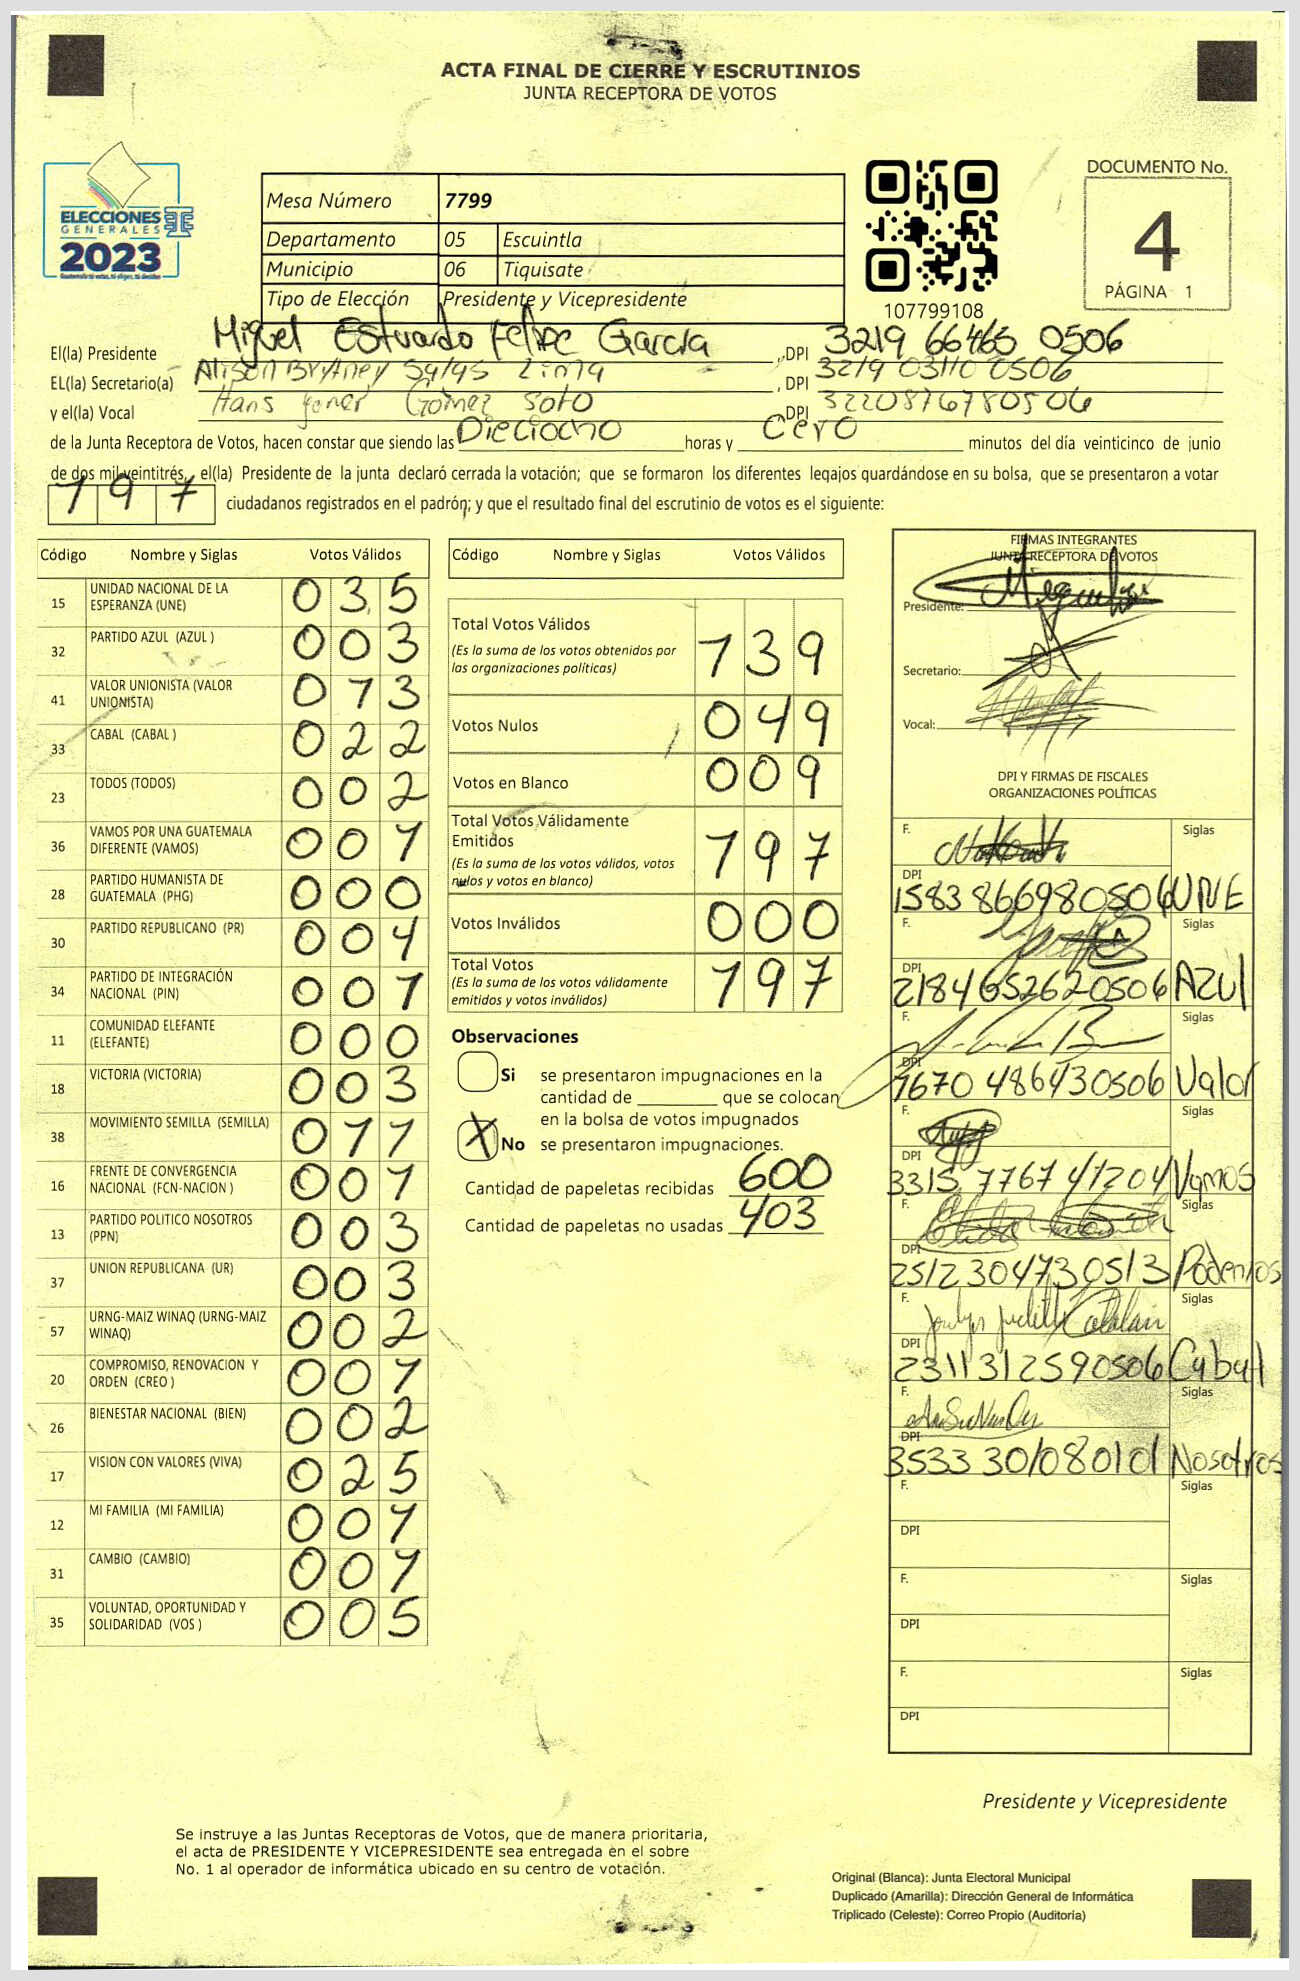 ACTA FINAL DE CIERRE Y ESCRUTINIOS
JUNTA RECEPTORA DE VOTOS
ELECCIONES
GENERALES
2023
Mesa Número 7799
Departamento 05 Escuintla
Municipio 06 Tiquisate
Tipo de Elección Presidente y Vicepresidente
107799108
DOCUMENTO No.
4
PÁGINA 1
El(la) Presidente Miguel Estuardo Felipe Garcia , DPI 3219 66465 0506
EL(la) Secretario(a) Alison Brytney Salas Lima , DPI 3219 03110 0506
y el(la) Vocal Hans Yener Gómez Soto DPI 3220876780506
de la Junta Receptora de Votos, hacen constar que siendo las Dieciocho horas y Cero minutos del día veinticinco de junio
de dos mil veintitrés, el(la) Presidente de la junta declaró cerrada la votación; que se formaron los diferentes legajos guardándose en su bolsa, que se presentaron a votar
197 ciudadanos registrados en el padrón; y que el resultado final del escrutinio de votos es el siguiente:
Código Nombre y Siglas Votos Válidos
15 UNIDAD NACIONAL DE LA ESPERANZA (UNE) 035
32 PARTIDO AZUL (AZUL ) 003
41 VALOR UNIONISTA (VALOR UNIONISTA) 013
33 CABAL (CABAL ) 022
23 TODOS (TODOS) 002
36 VAMOS POR UNA GUATEMALA DIFERENTE (VAMOS) 001
28 PARTIDO HUMANISTA DE GUATEMALA (PHG) 000
30 PARTIDO REPUBLICANO (PR) 004
34 PARTIDO DE INTEGRACIÓN NACIONAL (PIN) 001
11 COMUNIDAD ELEFANTE (ELEFANTE) 000
18 VICTORIA (VICTORIA) 003
38 MOVIMIENTO SEMILLA (SEMILLA) 011
16 FRENTE DE CONVERGENCIA NACIONAL (FCN-NACION ) 001
13 PARTIDO POLITICO NOSOTROS (PPN) 003
37 UNION REPUBLICANA (UR) 003
57 URNG-MAIZ WINAQ (URNG-MAIZ WINAQ) 002
20 COMPROMISO, RENOVACION Y ORDEN (CREO ) 001
26 BIENESTAR NACIONAL (BIEN) 002
17 VISION CON VALORES (VIVA) 025
12 MI FAMILIA (MI FAMILIA) 001
31 CAMBIO (CAMBIO) 001
35 VOLUNTAD, OPORTUNIDAD Y SOLIDARIDAD (VOS ) 005
Código Nombre y Siglas Votos Válidos
Total Votos Válidos 139
(Es la suma de los votos obtenidos por
las organizaciones políticas)
Votos Nulos 049
Votos en Blanco 009
Total Votos Válidamente
Emitidos 197
(Es la suma de los votos válidos, votos
nulos y votos en blanco)
Votos Inválidos 000
Total Votos 197
(Es la suma de los votos válidamente
emitidos y votos inválidos)
Observaciones
Si se presentaron impugnaciones en la
cantidad de ________ que se colocan
en la bolsa de votos impugnados
X No se presentaron impugnaciones.
Cantidad de papeletas recibidas 600
Cantidad de papeletas no usadas 403
FIRMAS INTEGRANTES
JUNTA RECEPTORA DE VOTOS
Presidente:
Secretario:
Vocal:
DPI Y FIRMAS DE FISCALES
ORGANIZACIONES POLÍTICAS
F. Siglas
DPI 1583 86698 0506 UNE
F. Siglas
DPI 2184 65262 0506 AZUl
F. Siglas
DPI 1670 48643 0506 Valor
F. Siglas
DPI 3315 17674 1204 Vamos
F. Siglas
DPI 2512 30473 0513 Podemos
F. Siglas
DPI 2311 31259 0506 Cabal
F. Siglas
DPI 3533 30108 0101 Nosotros
F. Siglas
DPI
F. Siglas
DPI
F. Siglas
DPI
Presidente y Vicepresidente
Se instruye a las Juntas Receptoras de Votos, que de manera prioritaria,
el acta de PRESIDENTE Y VICEPRESIDENTE sea entregada en el sobre
No. 1 al operador de informática ubicado en su centro de votación.
Original (Blanca): Junta Electoral Municipal
Duplicado (Amarilla): Dirección General de Informática
Triplicado (Celeste): Correo Propio (Auditoría)